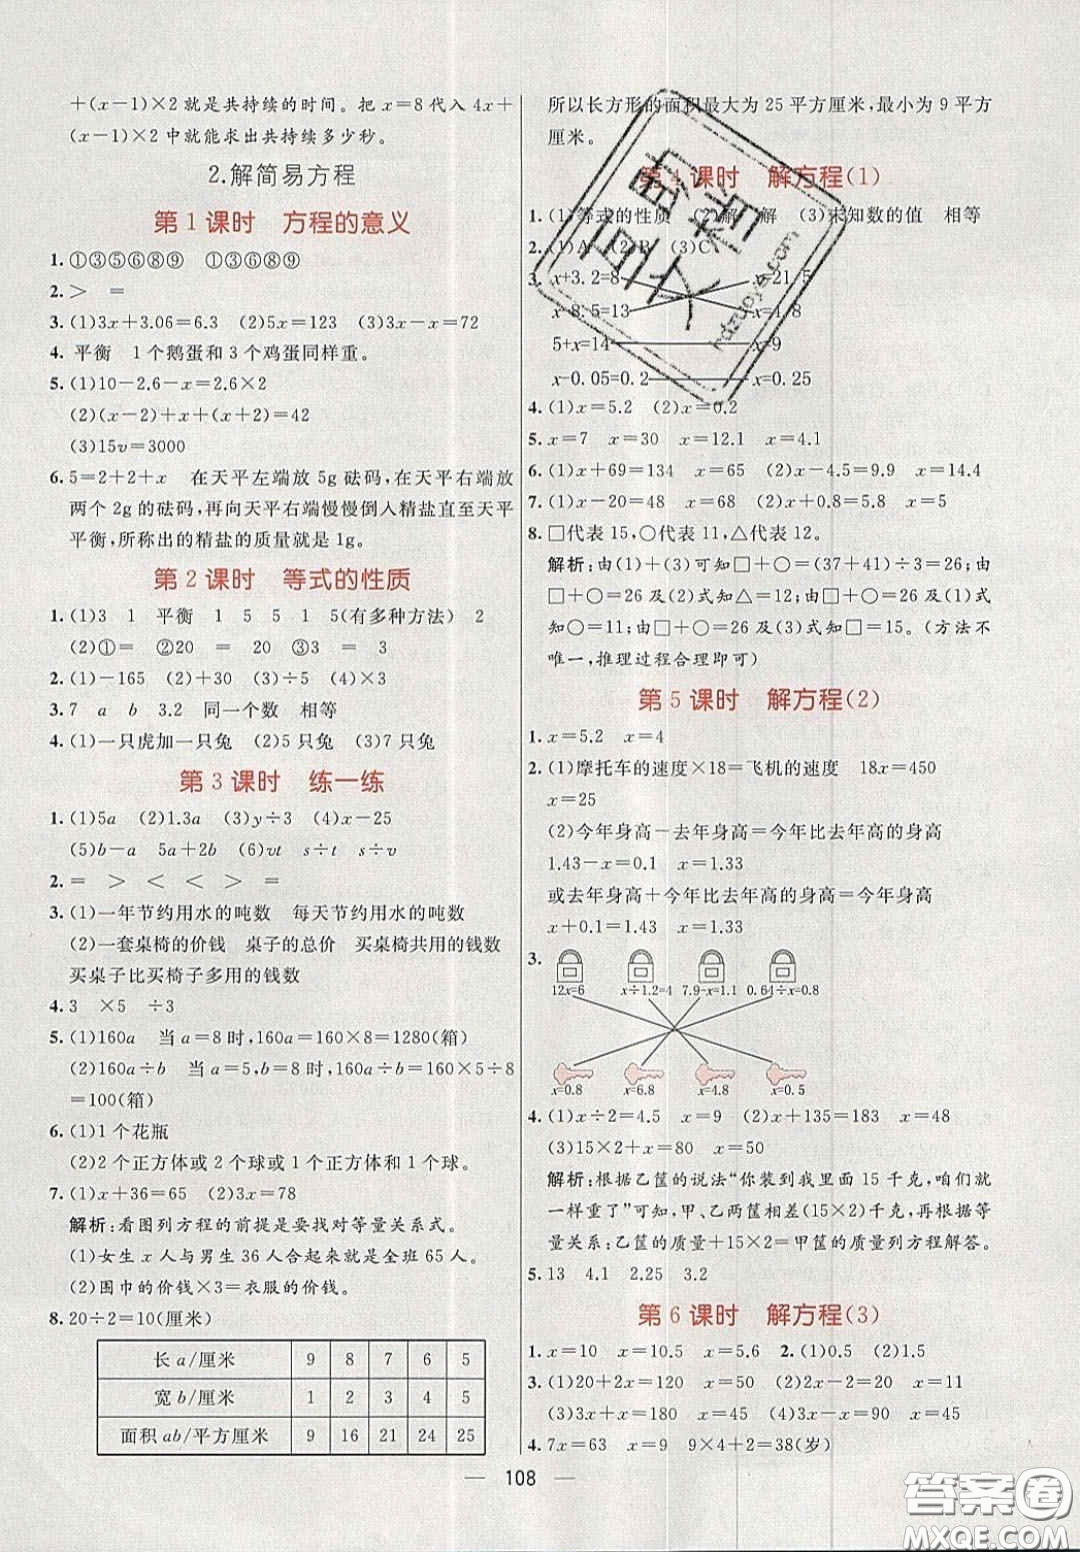 +(x-1)×2 就是共持续的时间。把 x=8 代入 4x+
(x-1)×2 中就能求出共持续多少秒。
2.解简易方程
第 1 课时 方程的意义
1. ①③⑤⑥⑧⑨ ①③⑥⑧⑨
2. > =
3. (1)3x+3.06=6.3 (2)5x=123 (3)7x-x=72
4. 平衡 1 个鹅蛋和 3 个鸡蛋同样重。
5. (1)10-2.6-x=2.6×2
(2)(x-2)+x+(x+2)=42
(3)15v=3000
6. 5=2+2+x 在天平左端放 5g 砝码,在天平右端放
两个 2g 的砝码,再向天平右端慢慢倒入精盐直至天平
平衡,所称出的精盐的质量就是 1g。
第 2 课时 等式的性质
1. (1)3 1 平衡 1 5 5 1 5(有多种方法) 2
(2)①= ②20 = 20 ③3 = 3
2. (1)-165 (2)+30 (3)÷5 (4)×3
3. 7 a b 3.2 同一个数 相等
4. (1)一只虎加一只兔 (2)5 只兔 (3)7 只兔
第 3 课时 练一练
1. (1)5a (2)1.3a (3)y÷3 (4)x-25
(5)b-a 5a+2b (6)vt s÷t s÷v
2. = > < < > =
3. (1)一年节约用水的吨数 每天节约用水的吨数
(2)一套桌椅的价钱 桌子的总价 买桌椅共用的钱数
买桌子比买椅子多用的钱数
4. 3 ×5 ÷3
5. (1)160a 当 a=8 时,160a=160×8=1280(箱)
(2)160a÷b 当 a=5,b=8 时,160a÷b=160×5÷8
=100(箱)
6. (1)1 个花瓶
(2)2 个正方体或 2 个球或 1 个正方体和 1 个球。
7. (1)x+36=65 (2)3x=78
解析:看图列方程的前提是要找对等量关系式。
(1)女生 x 人与男生 36 人合起来就是全班 65 人。
(2)围巾的价钱×3=衣服的价钱。
8. 20÷2=10(厘米)
长 a/厘米 9 8 7 6 5
宽 b/厘米 1 2 3 4 5
面积 ab/平方厘米 9 16 21 24 25
所以长方形的面积最大为 25 平方厘米,最小为 9 平方
厘米。
第 4 课时 解方程(1)
1. (1)等式的性质 (2)解 解 (3)未知数的值 相等
2. (1)A (2)B (3)C
3. x+3.2=8 x=21.5
x-8.5=13 x=4.8
5+x=14 x=9
x-0.05=0.2 x=0.25
4. (1)x=5.2 (2)x=0.2
5. x=7 x=30 x=12.1 x=4.1
6. (1)x+69=134 x=65 (2)x-4.5=9.9 x=14.4
7. (1)x-20=48 x=68 (2)x+0.8=5.8 x=5
8. □代表 15,○代表 11,△代表 12。
解析:由(1)+(3)可知□+○=(37+41)÷3=26,由
□+○=26 及(2)式知△=12;由□+○=26 及(1)式
知○=11;由□+○=26 及(3)式知□=15。(方法不
唯一,推理过程合理即可)
第 5 课时 解方程(2)
1. x=5.2 x=4
2. (1)摩托车的速度×18=飞机的速度 18x=450
x=25
(2)今年身高-去年身高=今年比去年高的身高
1.43-x=0.1 x=1.33
或去年身高+今年比去年高的身高=今年身高
x+0.1=1.43 x=1.33
3.
12x=6 x÷1.2=4 7.9-x=1.1 0.64÷x=0.8
x=0.8 x=6.8 x=4.8 x=0.5
4. (1)x÷2=4.5 x=9 (2)x+135=183 x=48
(3)15×2+x=80 x=50
解析:根据乙筐的说法“你装到我里面 15 千克,咱们就
一样重了”可知,甲、乙两筐相差(15×2)千克,再根据等
量关系:乙筐的质量+15×2=甲筐的质量列方程解答。
5. 13 4.1 2.25 3.2
第 6 课时 解方程(3)
1. x=10 x=10.5 x=5.6 2. (1)0.5 (2)1.5
3. (1)20+2x=120 x=50 (2)2x-2=20 x=11
(3)3x+x=180 x=45 (4)3x-x=90 x=45
4. 7x=63 x=9 9×4+2=38(岁)
108
答案圈
MXQE.COM